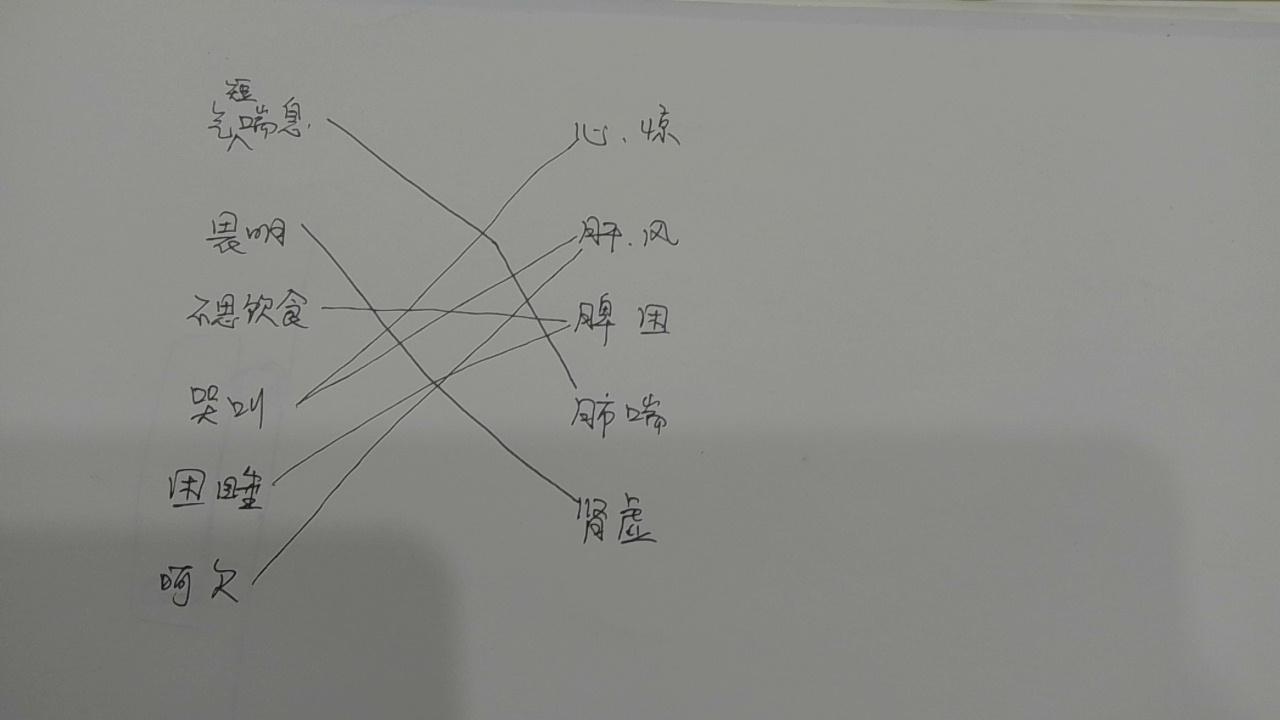 短
气喘息.
心、惊
畏明
肝.风
不思饮食
脾困
哭叫
肺喘
困睡
肾虚
呵欠